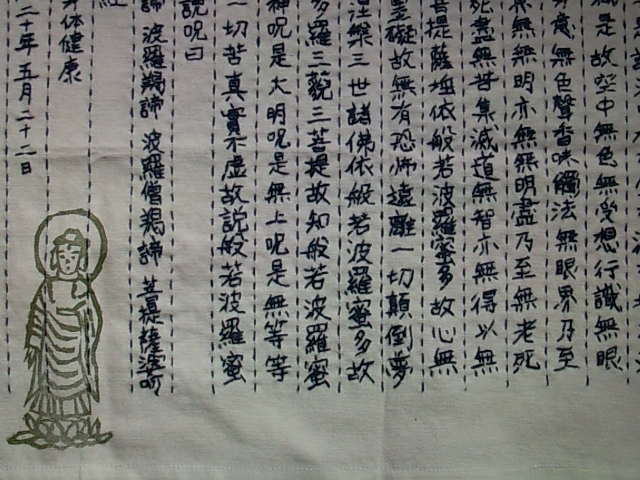 是故空中無色無受想行識無眼
意無色聲香味觸法無眼界乃至
無無明亦無無明盡乃至無老死
死盡無苦集滅道無智亦無得以無
菩提薩埵依般若波羅蜜多故心無
罣礙故無有恐怖遠離一切顛倒夢
涅槃三世諸佛依般若波羅蜜多故
多羅三藐三菩提故知般若波羅蜜
神呪是大明呪是無上呪是無等等
一切苦真實不虚故説般若波羅蜜
説呪曰
諦 波羅羯諦 波羅僧羯諦 菩提薩婆呵
経
身体健康
二十年 五月二十二日